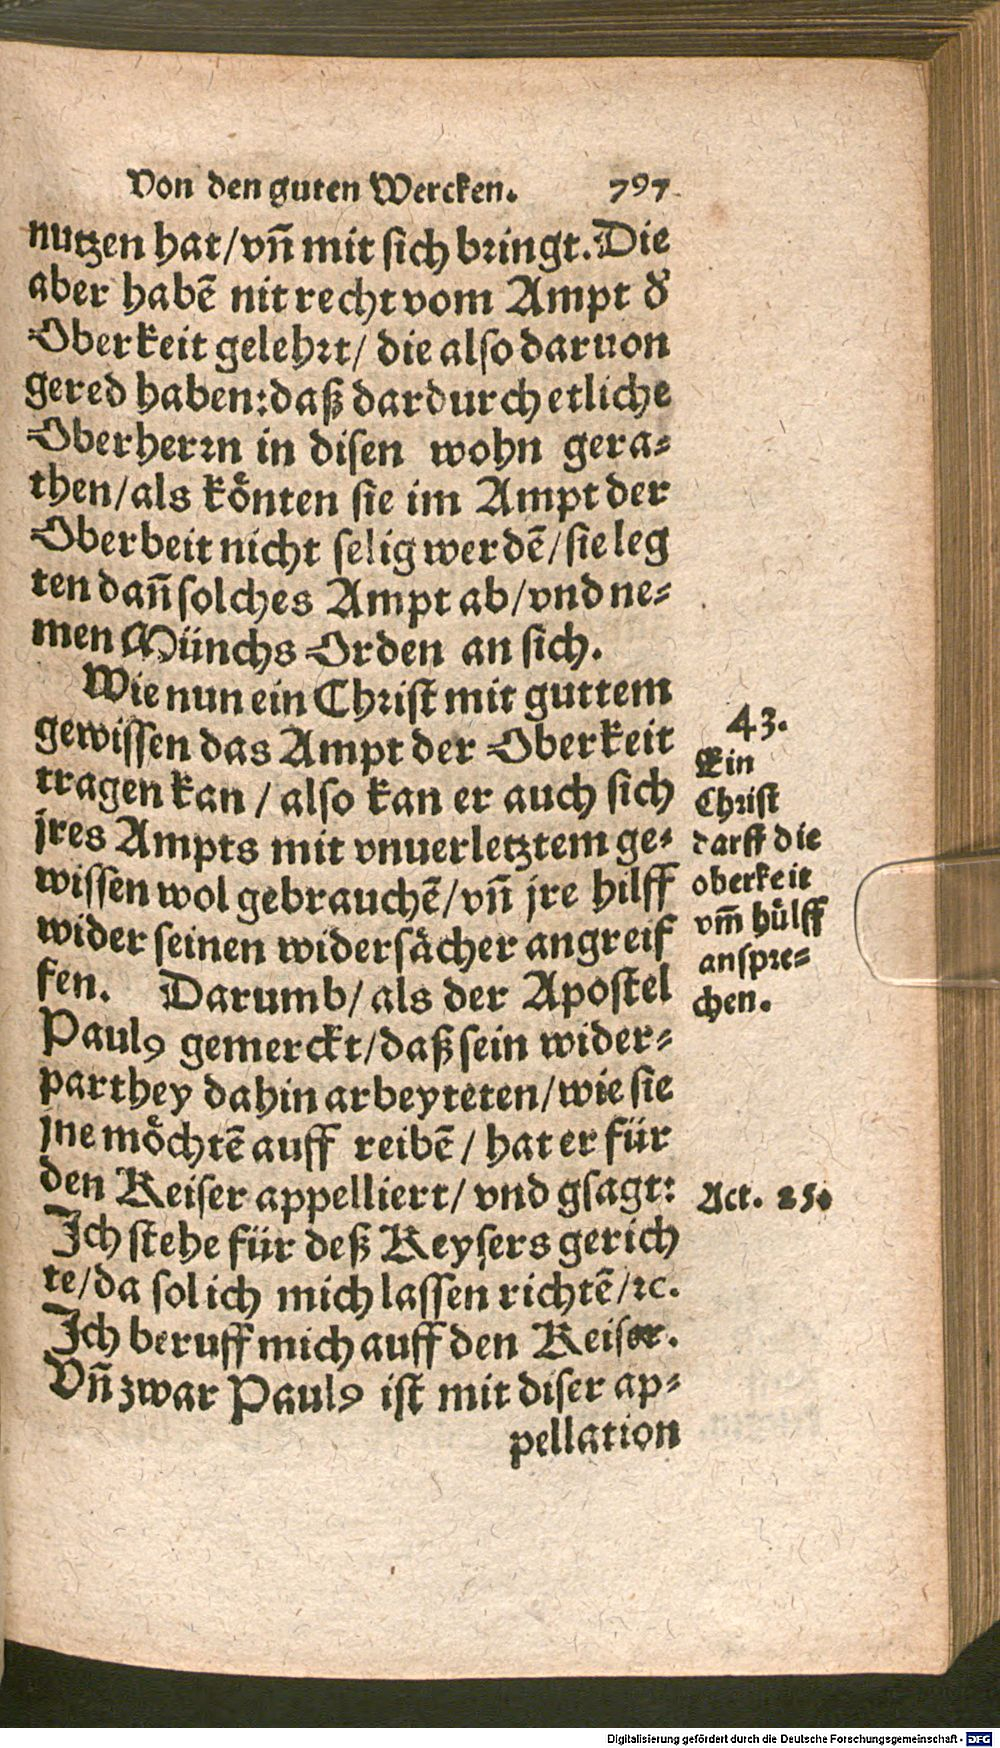 Von den guten Wercken. 797
nutzen hat/vñ mit sich bringt. Die
aber habẽ nit recht vom Ampt d
Oberkeit gelehrt/ die also daruon
gered haben: daß dardurch etliche
Oberherrn in disen wohn gera-
then/als koͤnten sie im Ampt der
Oberbeit nicht selig werdẽ/sie leg
ten dañ solches Ampt ab/vnd ne-
men Münchs Orden an sich.
Wie nun ein Christ mit guttem
gewissen das Ampt der Oberkeit
tragen kan / also kan er auch sich
jres Ampts mit vnuerletztem ge-
wissen wol gebrauchẽ/vñ jre hilff
wider seinen widersaͤcher angreif
fen. Darumb/ als der Apostel
Paulꝰ gemerckt/daß sein wider-
parthey dahin arbeyteten/wie sie
jne moͤchtẽ auff reibẽ / hat er für
den Keiser appelliert/ vnd gsagt:
Ich stehe für deß Keysers gerich
te/da sol ich mich lassen richtẽ/ꝛc.
Ich beruff mich auff den Keiser.
Vñ zwar Paulꝰ ist mit diser ap-
pellation
43.
Ein
Christ
darff die
oberkeit
vm̃ hülff
anspre-
chen.
Act. 25.
Digitalisierung gefördert durch die Deutsche Forschungsgemeinschaft - DFG